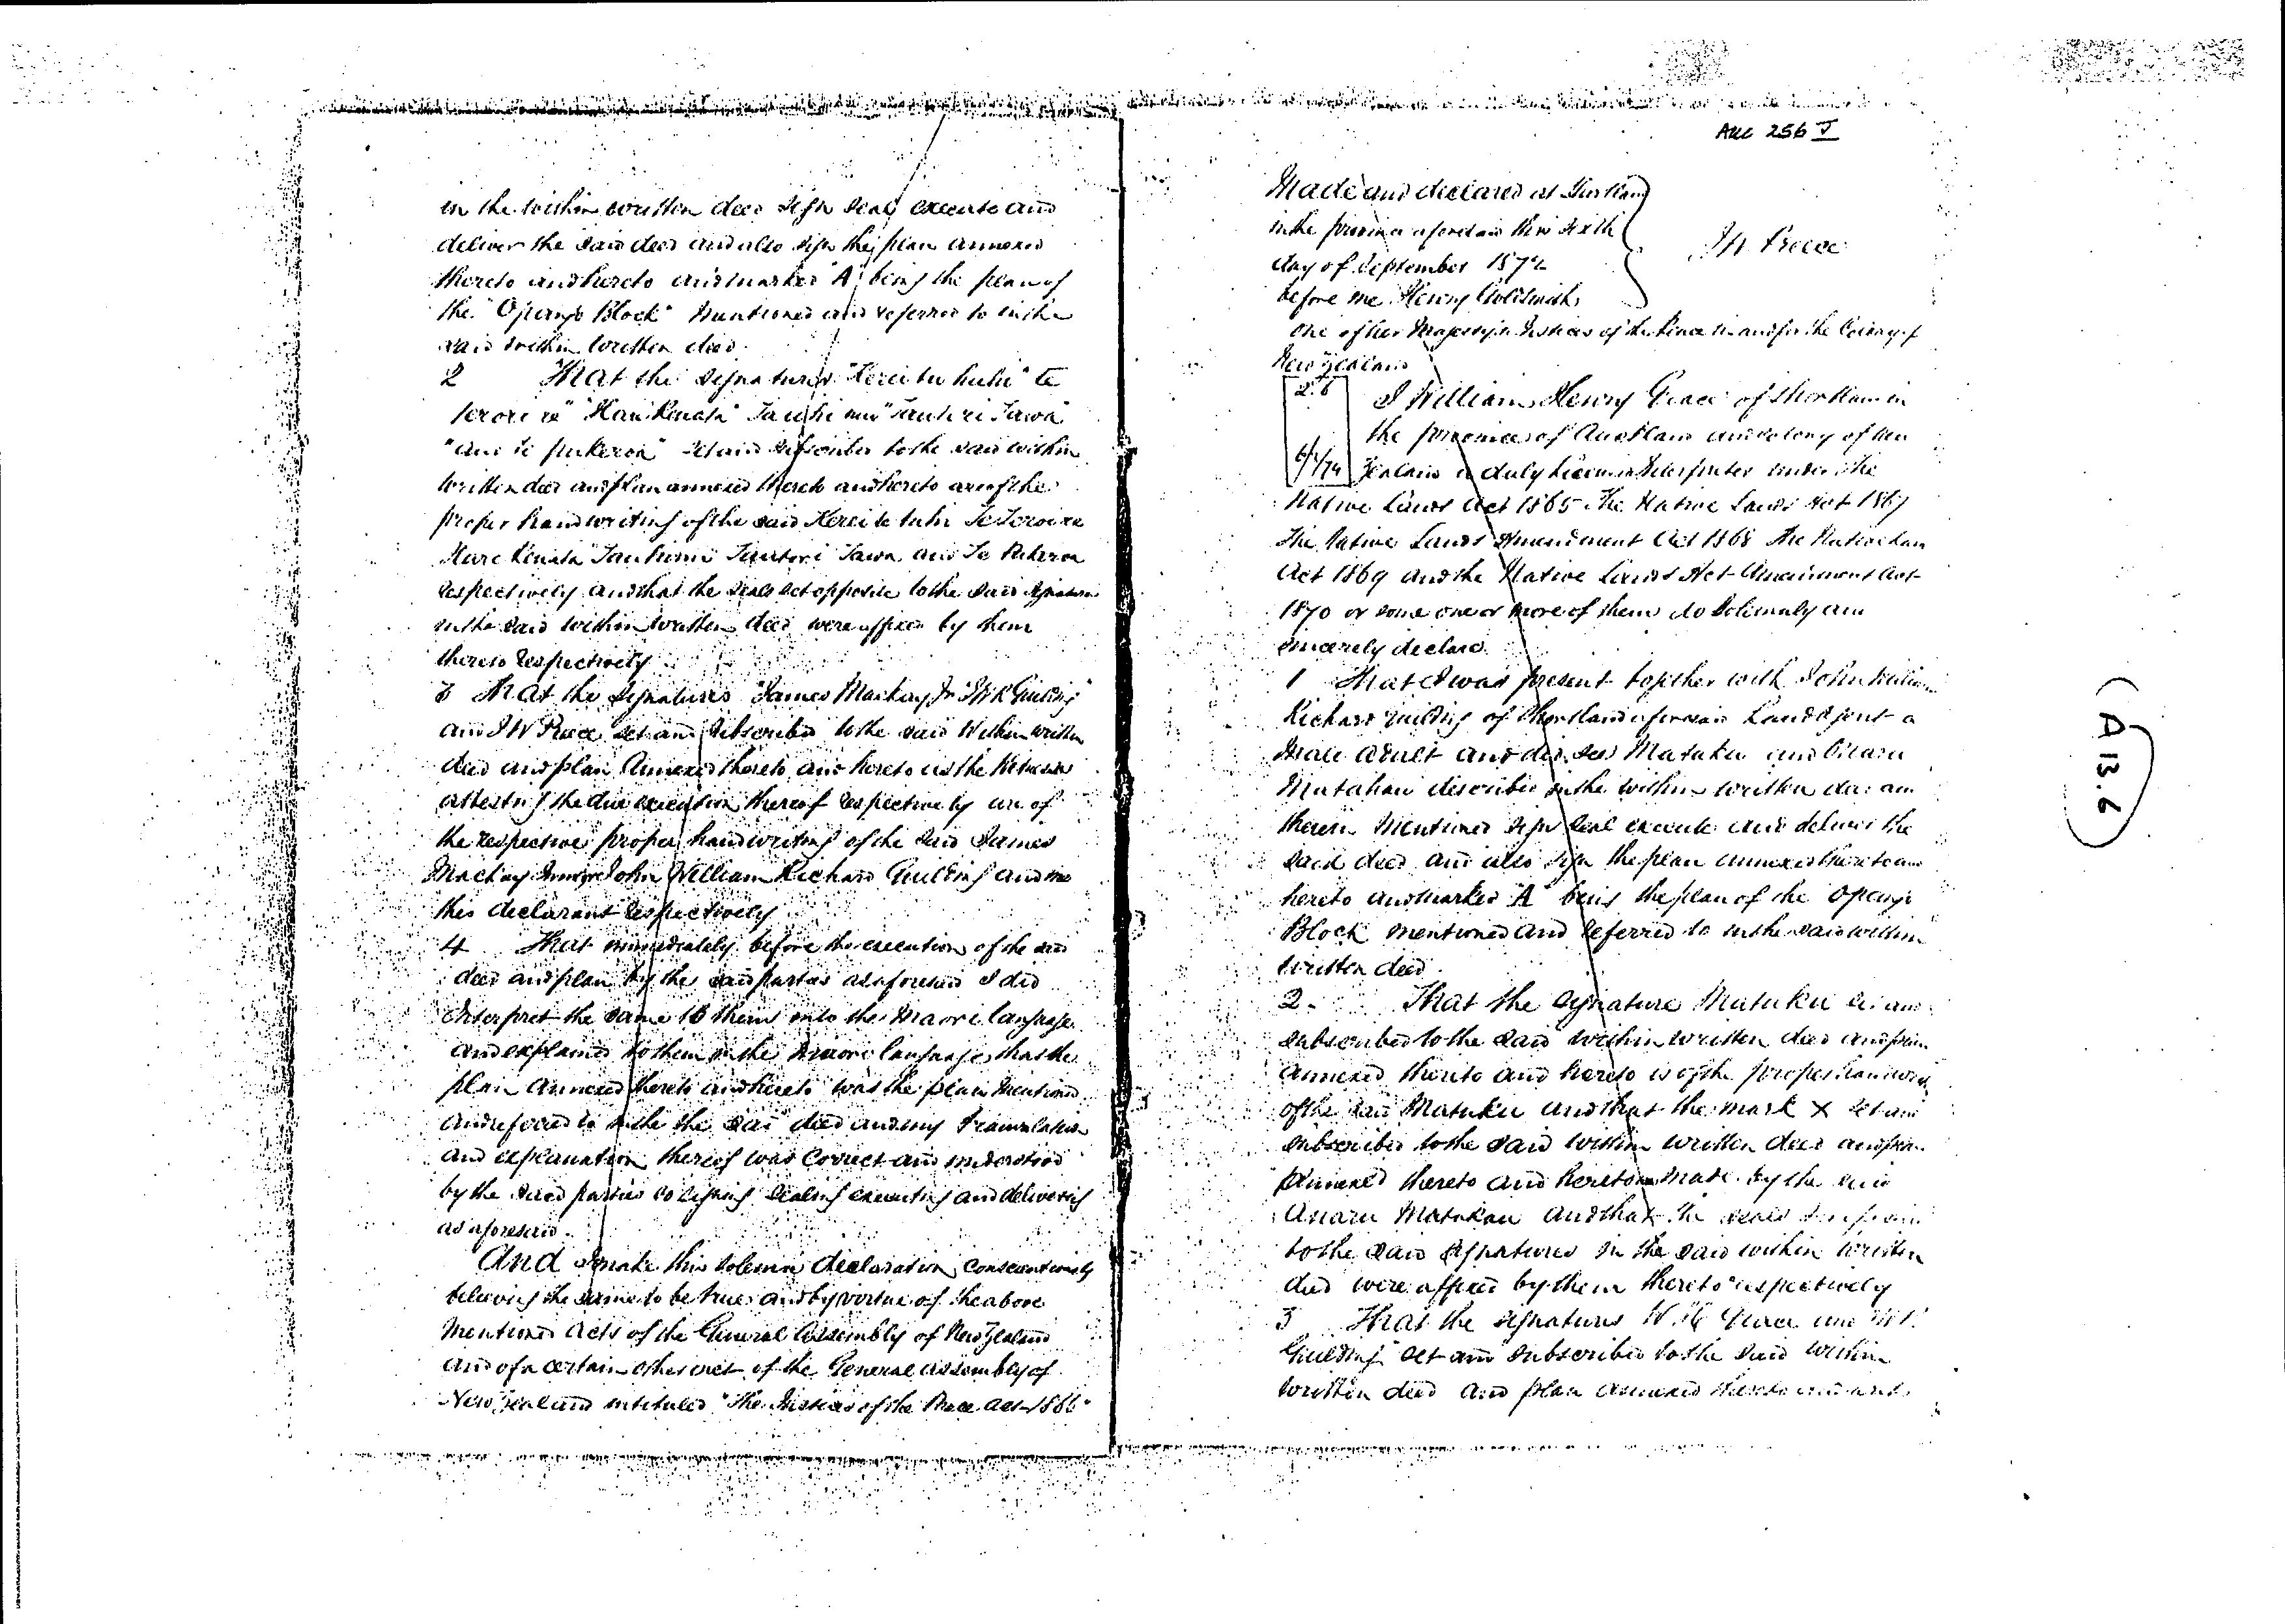 in the within written deed sign seal execute and
deliver the said deed and also sign the plan annexed
thereto and hereto and marked "A" being the plan of
the "Opango Block" mentioned and referred to in the
said within written deed.
2 That the signatures
"Hare Renata"
set and subscribed to the said within
written deed and plan annexed thereto and hereto are of the
proper handwriting of the said
Hare Renata
respectively and that the seals set opposite to the said signatures
in the said within written deed were affixed by them
thereto respectively
3 That the signatures "James Mackay Jr"
and J W Preece set and subscribed to the said within written
deed and plan annexed thereto and hereto as the witnesses
attesting the due execution thereof respectively are of
the respective proper handwriting of the said James
Mackay Junior John William Richard Guilding and me
this declarant respectively
4 That immediately before the execution of the said
deed and plan by the said parties as aforesaid I did
interpret the same to them into the Maori language
and explained to them in the Maori language that the
plan annexed thereto and hereto was the plan mentioned
and referred to in the the said deed and my translation
and explanation thereof was correct and understood
by the said parties so signing sealing executing and delivering
as aforesaid.
And I make this solemn declaration conscientiously
believing the same to be true and by virtue of the above
mentioned acts of the General Assembly of New Zealand
and of a certain other act of the General assembly of
New Zealand intituled "The Justices of the Peace Act 1866"
ARC 256 J
Made and declared at Shortland
in the province aforesaid this sixth
day of September 1872
before me Henry Goldsmith
one of Her Majesty's Justices of the Peace in and for the Colony of
New Zealand
J W Preece
2.6
I William Henry Grace of Shortland in
the province of Auckland and colony of New
Zealand a duly licensed Interpreter under the
Native Lands Act 1865 The Native Lands Act 1867
The Native Lands Amendment Act 1868 The Native Lands
Act 1869 and the Native Lands Act Amendment Act
1870 or some one or more of them do solemnly and
sincerely declare.
1 That I was present together with John William
Richard Guilding of Shortland aforesaid Land Agent a
male adult and did see Matuku and Anaru
Matahau described in the within written deed and
therein mentioned sign seal execute and deliver the
said deed and also sign the plan annexed thereto and
hereto and marked "A" being the plan of the Opango
Block mentioned and referred to in the said within
written deed.
2. That the signature Matuku set and
subscribed to the said within written deed and plan
annexed thereto and hereto is of the proper handwriting
of the said Matuku and that the mark X set and
subscribed to the said within written deed and plan
annexed thereto and hereto was made by the said
Anaru Matahau and that the seals
to the said signatures in the said within written
deed were affixed by them thereto respectively
3 That the signatures W. H. Grace and
Guilding set and subscribed to the said within
written deed and plan annexed thereto and
A 13.6